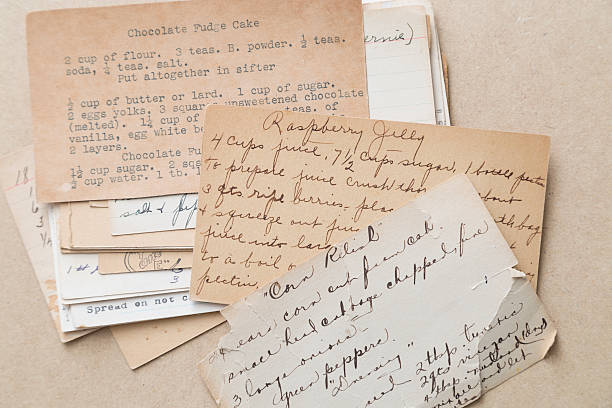 Chocolate Fudge Cake
2 cup of flour. 3 teas. B. powder. ½ teas.
soda, ¼ teas. salt.
Put altogether in sifter
½ cup of butter or lard. 1 cup of sugar.
2 eggs yolks. 3 square unsweetened chocolate
(melted). 1¼ cup of teas. of
vanilla, egg white
2 layers.
Chocolate Fu
1½ cup sugar. 2 sq
½ cup water. 1 tb.
ernie)
Raspberry Jelly
4 cups juice, 7½ cups sugar, 1 bottle pectin
To prepare juice crush about
3 qts ripe berries. bag
& squeeze out juice
juice into
to a boil
pectin,
salt &
18
1
6
3
Spread on
"Corn Relish"
ears corn cut from cob.
small head cabbage chopped fine
3 large onions.
green peppers.
"Dressing"
2 tbsp tumeric
2 qts vinegar
4 tbsp mustard (dry)
and let